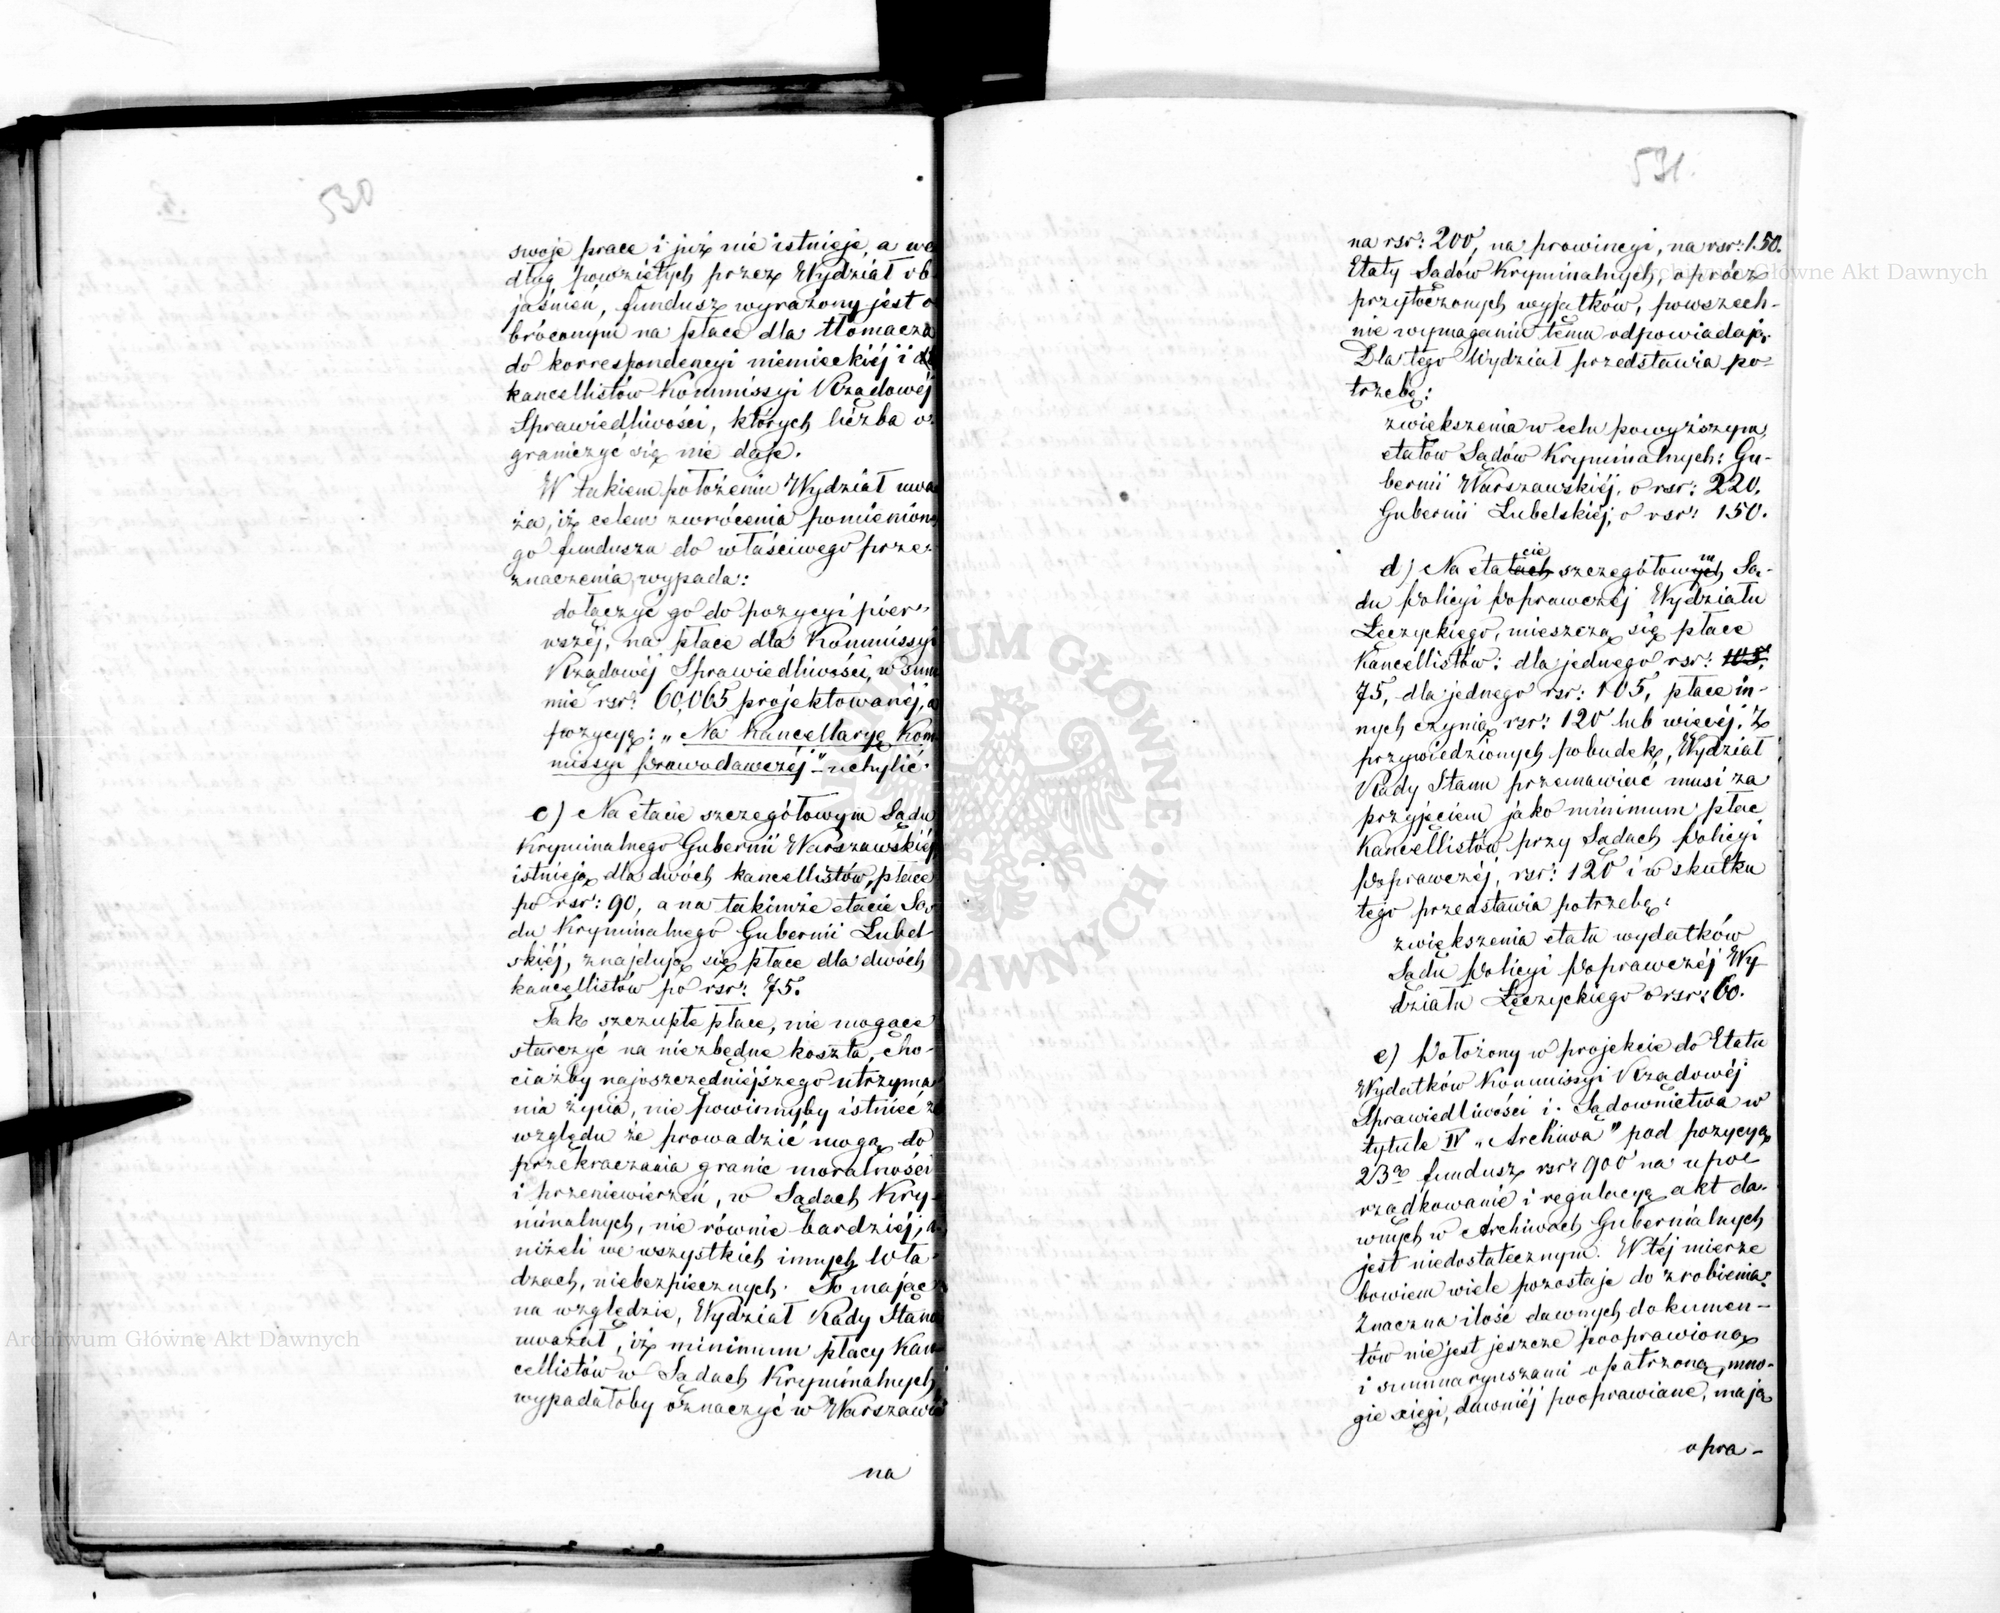 530
swoje prace i już nie istnieje, a we
dług powziętych przez Wydział ob
jaśnień, fundusz wyrażony jest o
bróconym na płace dla tłomacza
do korrespondencyi niemieckiéj i dla
kancellistów Kommissyi Rządowéj
Sprawiedliwości, których liczba o
graniczyć się nie daje.
W takiem położeniu Wydział uwa
ża, iż celem zwrócenia pomienione
go funduszu do właściwego prze-
znaczenia, wypada:
dołączyć go do pozycyi piér-
wszéj, na płace dla Kommissyi
Rządowéj Sprawiedliwości, w sum
mie rsr: 60,065 projektowanéj, a
pozycyą: „Na Kancellaryę Kom
missyi Prawodawczéj" uchylić.
c) Na etacie szczegółowym Sądu
Kryminalnego Gubernii Warszawskiéj
istnieją dla dwóch kancellistów, płace
po rsr: 90, a na takimże etacie Są-
du Kryminalnego Gubernii Lubel-
skiéj, znajdują się płace dla dwóch
kancellistów po rsr: 75.
Tak szczupłe płace, nie mogące
starczyć na niezbędne koszta, cho-
ciażby najoszczędniejszego utrzyma
nia życia, nie powinnyby istnieć z
względu że prowadzić mogą do
przekraczania granic moralności
i przeniewierzeń, w Sądach Kry-
minalnych, nierównie bardziéj, a
niżeli we wszystkich innych Wła
dzach, niebezpiecznych. To mając
na względzie, Wydział Rady Stanu
uważał, iż minimum płacy Kan
cellistów w Sądach Kryminalnych
wypadałoby oznaczyć w Warszawie
na
531.
na rsr: 200, na prowincyi, na rsr: 150.
Etaty Sądów Kryminalnych, oprócz
przytoczonych wyjątków, powszech-
nie wymaganiu temu odpowiadają.
Dla tego Wydział przedstawia po-
trzebę:
zwiększenia w celu powyższym,
etatów Sądów Kryminalnych: Gu-
bernii Warszawskiéj, o rsr: 220.
Gubernii Lubelskiéj, o rsr: 150.
d) Na etatach cie szczegółowych m Są-
du Policyi Poprawczéj Wydziału
Łęczyckiego, mieszczą się płace
Kancellistów: dla jednego rsr: 105,
75, dla jednego rsr: 105, płace in-
nych czynią rsr: 120 lub więcéj. Z
przywiedzionych pobudek, Wydział
Rady Stanu przemawiać musi za
przyjęciem jako minimum płac
Kancellistów przy Sądach Policyi
Poprawczéj, rsr: 120 i w skutku
tego przedstawia potrzebę:
zwiększenia etatu wydatków
Sądu Policyi Poprawczéj Wy-
działu Łęczyckiego o rsr: 60.
e) Położony w projekcie do Etatu
Wydatków Kommissyi Rządowéj
Sprawiedliwości i Sądownictwa w
tytule IV „Archiwa" pod pozycyą
23ą fundusz rsr: 900 na upo-
rządkowanie i regulacyą akt da-
wnych w Archiwach Gubernialnych
jest niedostatecznym. W téj mierze
bowiem wiele pozostaje do zrobienia.
Znaczna ilość dawnych dokumen-
tów nie jest jeszcze pooprawioną
i summaryuszami opatrzoną, mno-
gie xięgi, dawniéj pooprawiane, mają
opra-
Archiwum Główne Akt Dawnych
Archiwum Główne Akt Dawnych
ARCHIWUM GŁÓWNE AKT DAWNYCH